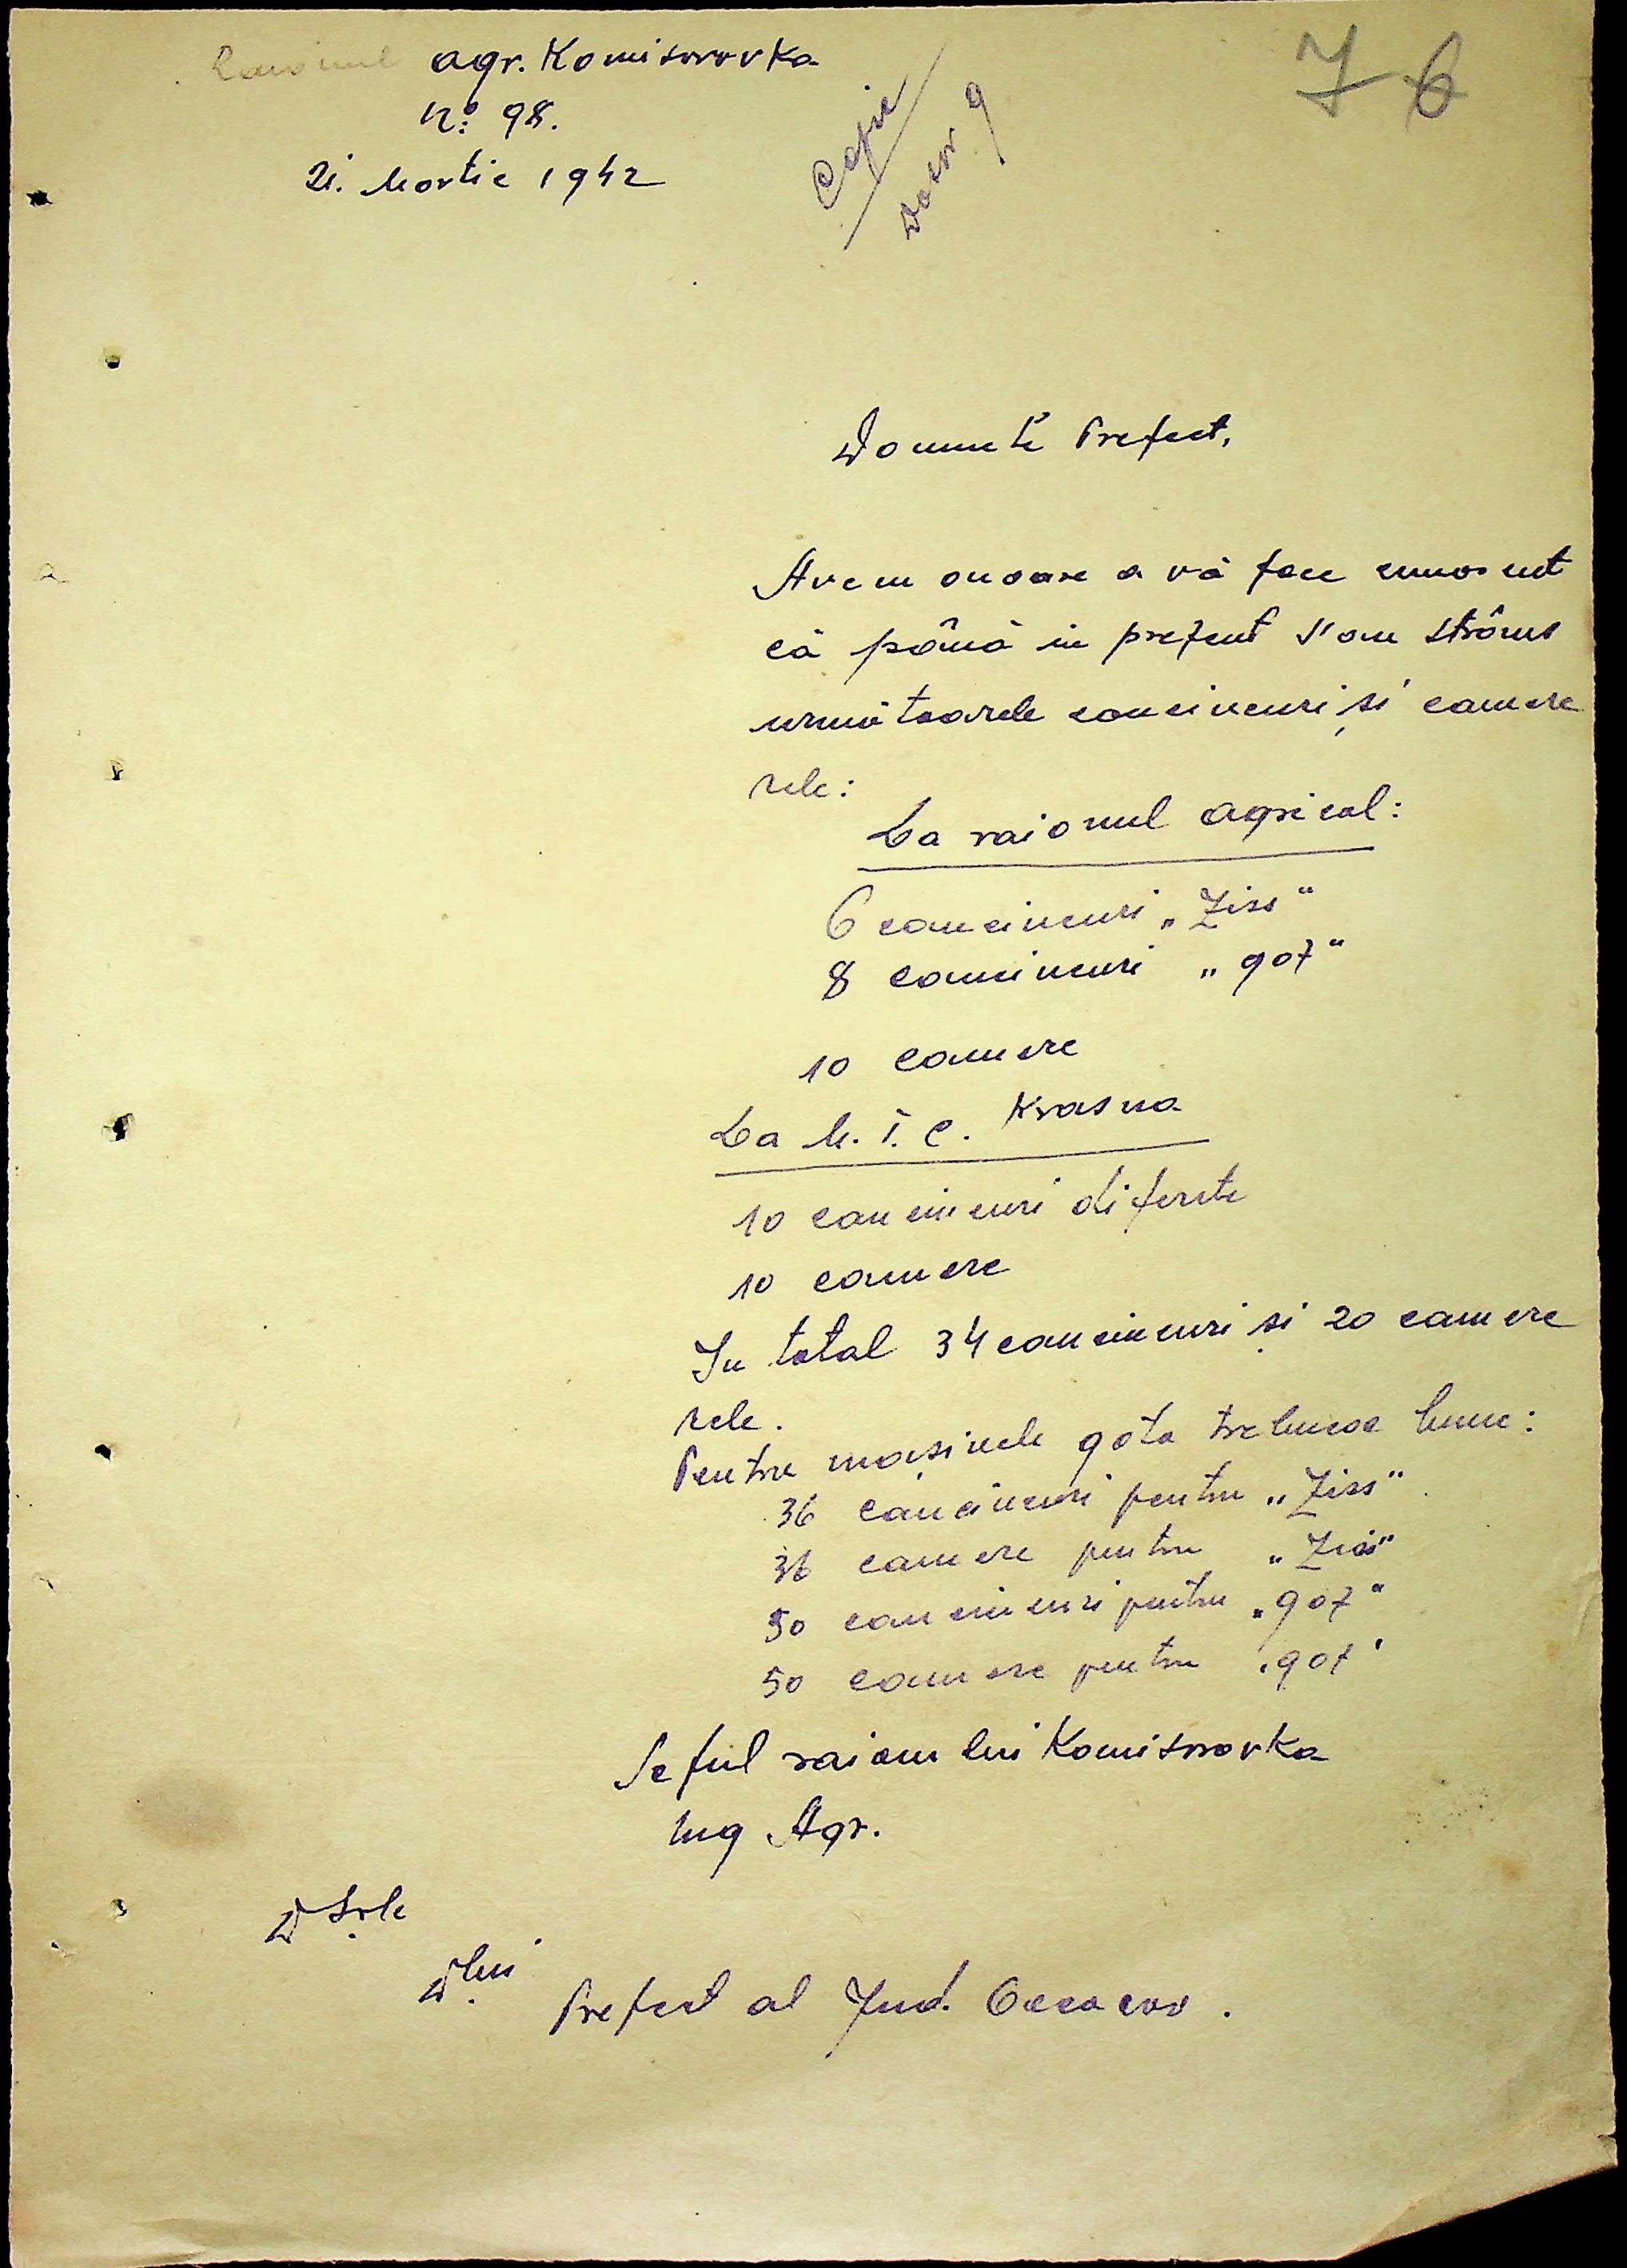 Raionul agr. Komisarovka
No: 98.
21. Martie 1942
Copie
Dosar 9
76
Domnule Prefect,
Avem onoare a vă face cunoscut
că până in prezent s'au strâns
următoarele cauciucuri și camere
rele:
La raionul agricol:
6 cauciucuri „Ziss“
8 cauciucuri „gaz“
10 camere
La M. T. C. Krasna
10 cauciucuri diferite
10 camere
In total 34 cauciucuri și 20 camere
rele.
Pentru mașinele gata trebuesc bune:
36 cauciucuri pentru „Ziss“
36 camere pentru „Ziss“
50 cauciucuri pentru „gaz“
50 camere pentru „gaz“
Seful raionului Komisarovka
Ing Agr.
D Sale
D lui
Prefect al Jud. Oceacov.